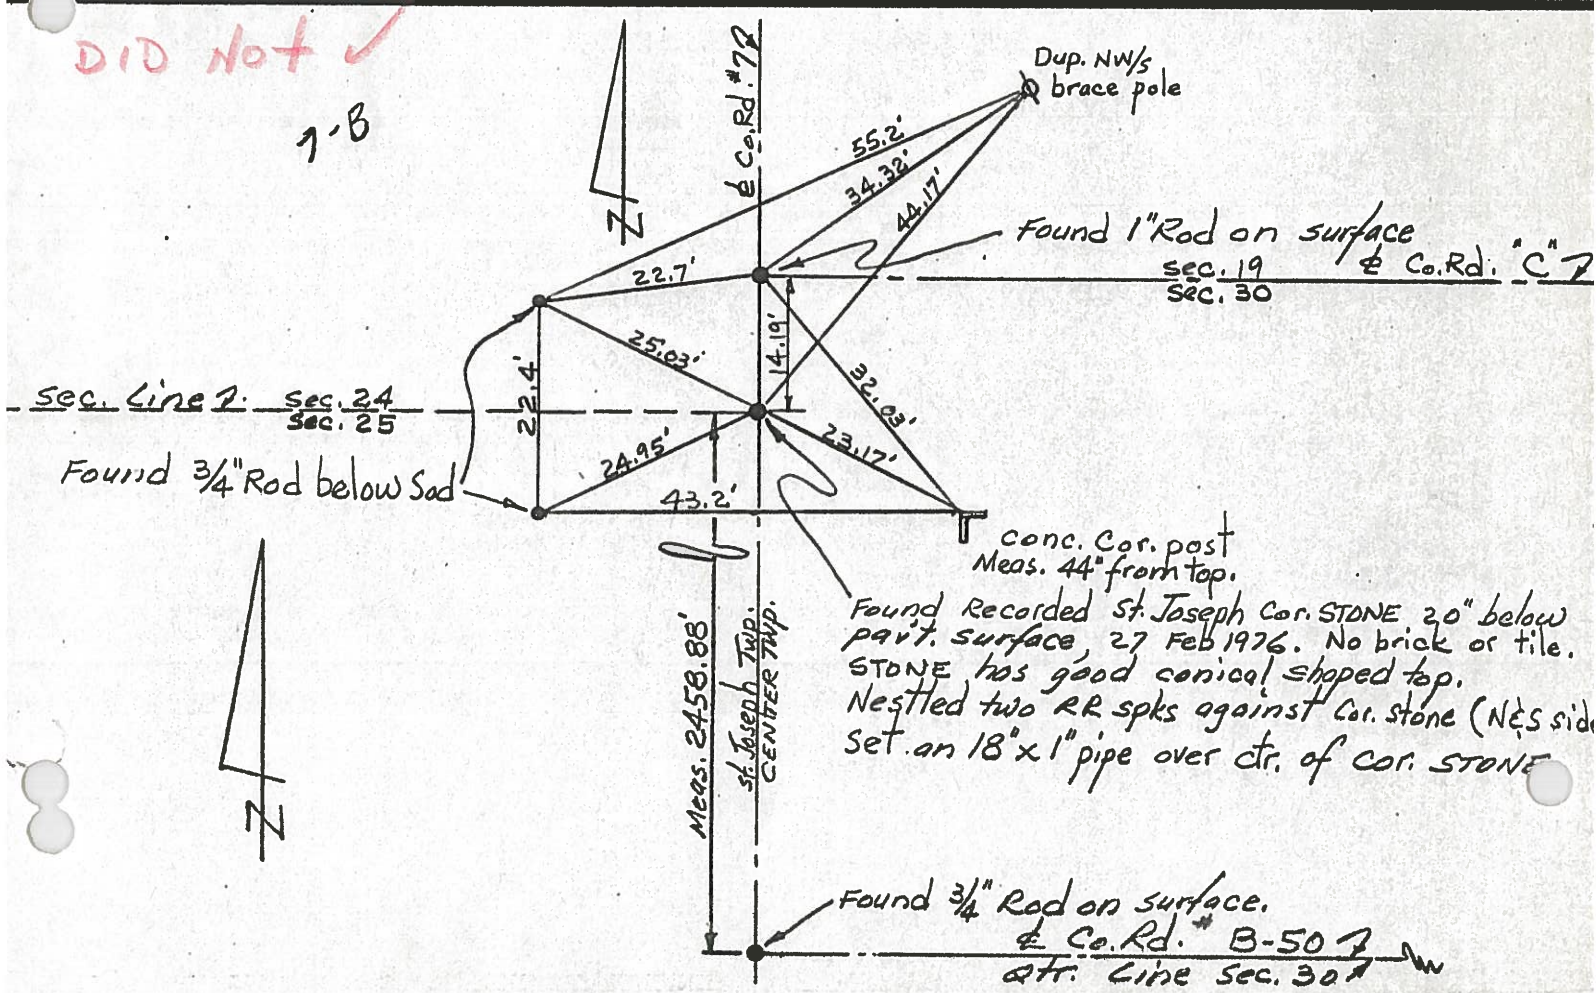 DID Not ✓
7-B
N
℄ Co.Rd. #7
Dup. NW/s
brace pole
55.2'
34.32'
44.17'
Found 1" Rod on surface
sec. 19
sec. 30
℄ Co.Rd. "C"
22.7'
25.03'
14.19'
32.03'
22.4'
sec. Line sec. 24
sec. 25
Found 3/4" Rod below Sod
24.95'
23.17'
43.2'
conc. Cor. post
Meas. 44" from top.
Found Recorded St. Joseph Cor. STONE 20" below
pav't. surface, 27 Feb 1976. No brick or tile.
STONE has good conical shaped top.
Nestled two RR spks against Cor. stone (N&S side
set an 18" x 1" pipe over ctr. of cor. STONE
N
Meas. 2458.88'
St. Joseph Twp.
CENTER TWP.
Found 3/4" Rod on surface.
℄ Co. Rd. # B-50
Qtr. Line Sec. 30